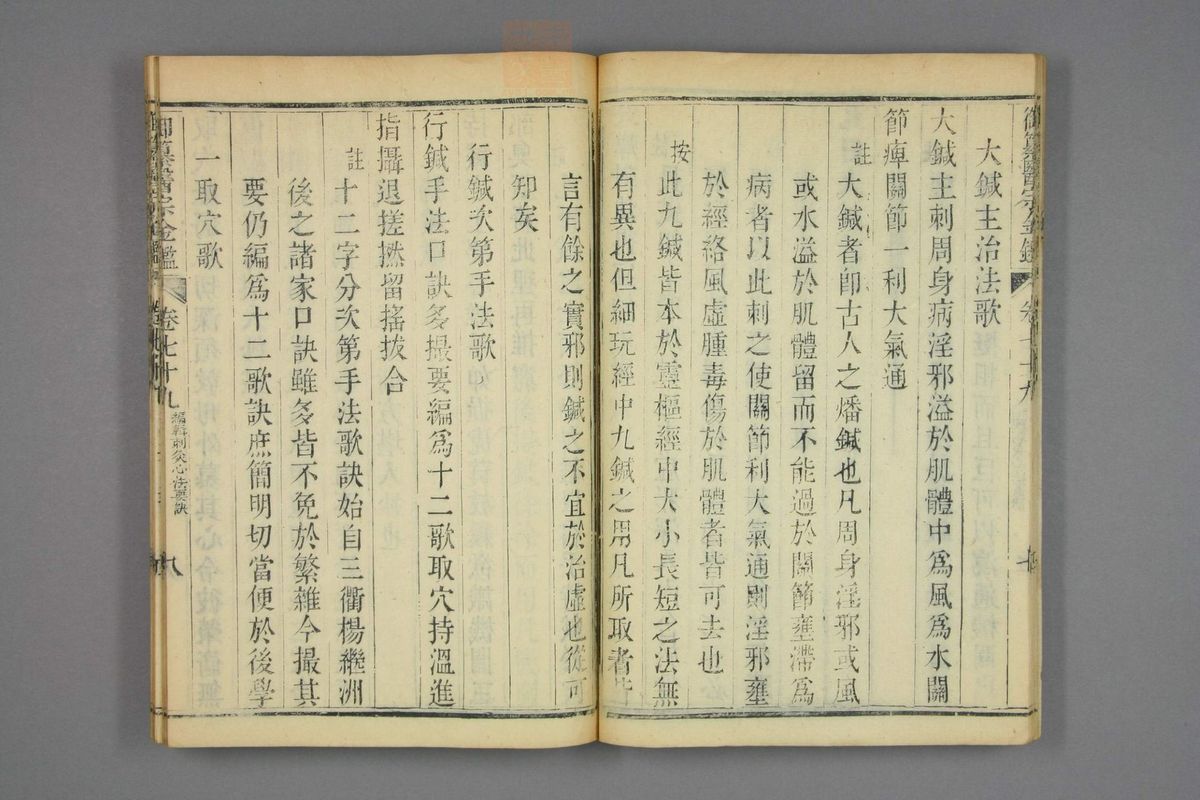 大鍼主治法歌
大鍼主刺周身病淫邪溢於肌體中爲風爲水關
節痺關節一利大氣通
註大鍼者卽古人之燔鍼也凡周身淫邪或風
或水溢於肌體留而不能過於關節壅滯爲
病者以此刺之使關節利大氣通則淫邪壅
於經絡風虛腫毒傷於肌體者皆可去也
按此九鍼皆本於靈樞經中大小長短之法無
有異也但細玩經中九鍼之用凡所取者皆
言有餘之實邪則鍼之不宜於治虛也從可
知矣
行鍼次第手法歌
行鍼手法口訣多撮要編爲十二歌取穴持溫進
指攝退搓撚留搖拔合
註十二字分次第手法歌訣始自三衢楊繼洲
後之諸家口訣雖多皆不免於繁雜今撮其
要仍編爲十二歌訣庶簡明切當便於後學
一取穴歌
御纂醫宗金鑑 卷七十九 編輯刺灸心法要訣 九